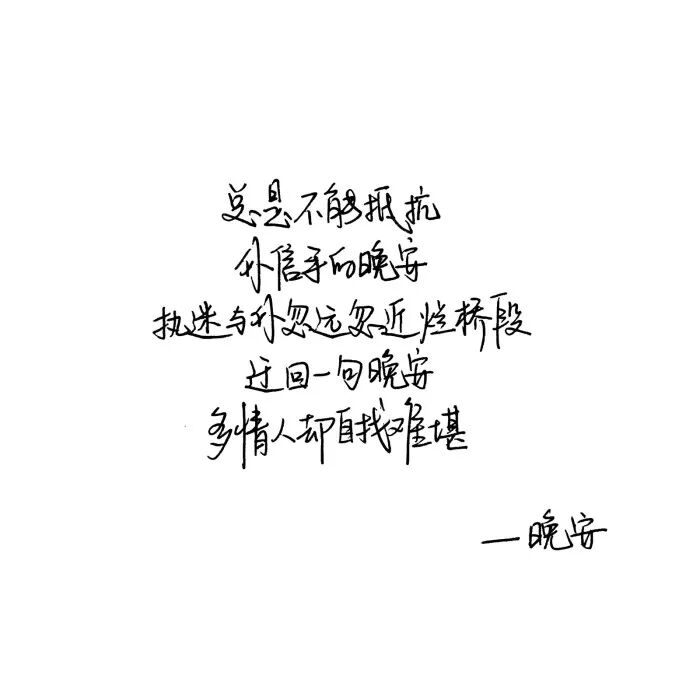 总是不能抵抗
你信手的晚安
执迷与你忽远忽近烂桥段
迂回一句晚安
多情人却自找难堪
—晚安